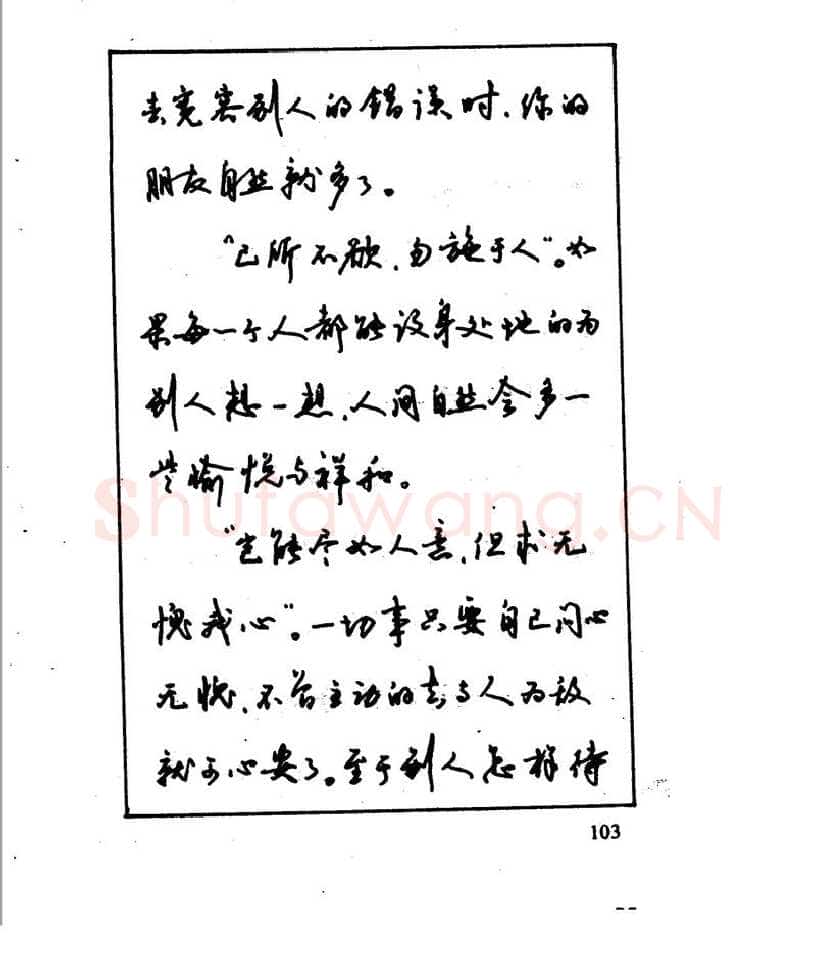 去宽容别人的错误时,你的
朋友自然就多了。
“己所不欲,勿施于人”。如
果每一个人都能设身处地的为
别人想一想,人间自然会多一
些愉悦与祥和。
Shufawang.CN
“岂能尽如人意,但求无
愧我心”。一切事只要自己问心
无愧,不曾主动的去与人为敌
就可心安了。至于别人怎样待
103